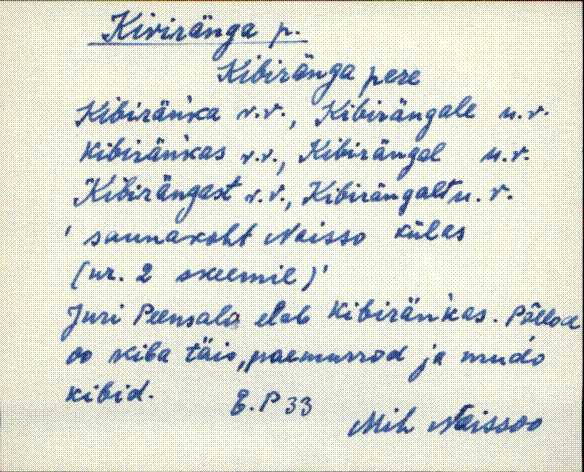 Kiviränga p.
Kibiränga pere
Kibirän'ka v.v., Kibirängale u.v.
Kibirän'kas v.v., Kibirängal u.v.
Kibirängast v.v., Kibirängalt u.v.
'saunakoht Naisso külas
(nr. 2 skeemil)'
Juri Peensalo elab Kibirän'kas. Põllod
oo kiba täis, paemurrod ja mudo
kibid.
E.P 33
Mih Naissoo